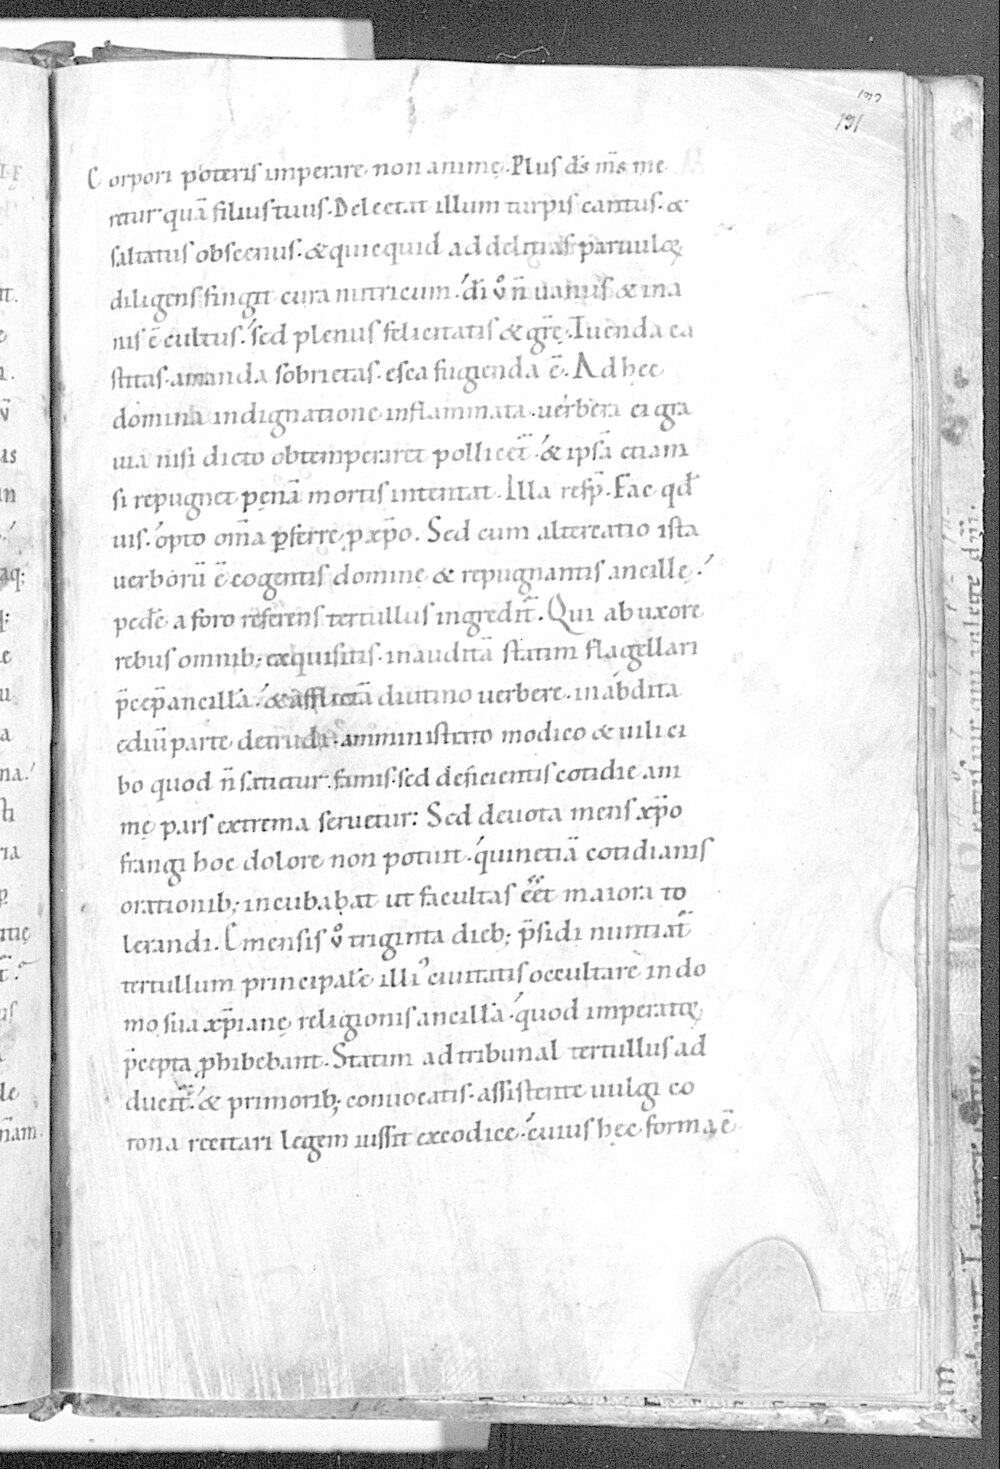 193
191
Corpori poteris imperare. non animę. Plus d̄s m̄s me
retur quā filius tuus. Delectat illum turpis cantus. &
saltatus obscenus. & quicquid ad delitias paruuloꝝ
diligens fingit cura nutricum. d̄i ů n̄ uanus & ina
nis ē cultus. sed plenus felicitatis & gr̄ę. Tuenda ca
stitas. amanda sobrietas. esca fugienda ē. Ad hęc
domina indignatione inflammata. uerbera ei gra
uia nisi dicto obtemperaret pollicet̄. & ipsā etiam
si repugnet pęnā mortis intentat. Illa resp̄. Fac qđ
uis. opto om̄a ꝑferre ꝓ xp̄o. Sed cum altercatio ista
uerborū ē cogentis dominę & repugnantis ancillę.
pedē a foro referens tertullus ingredit̄. Qui ab uxore
rebus omnib; exquisitis. inauditā statim flagellari
p̄cep̄ ancillā. & afflictā diutino uerbere. in abdita
ediū parte detrudi. amministrato modico & uili ci
bo quod n̄ satietur famis. sed deficientis cotidie ani
mę pars extrema seruetur: Sed deuota mens xp̄o
frangi hoc dolore non potuit. quin etiā cotidianis
orationib; incubabat ut facultas eēt maiora to
lerandi. Emensis ů triginta dieb; p̄sidi nuntiat̄
tertullum principalē illiꝰ ciuitatis occultare in do
mo sua xp̄ianę religionis ancillā. quod imperatoꝝ
p̄cepta ꝓhibebant. Statim ad tribunal tertullus ad
ducit̄. & primorib; conuocatis. assistente uulgi co
rona recitari legem iussit ex codice. cuius hęc forma ē.